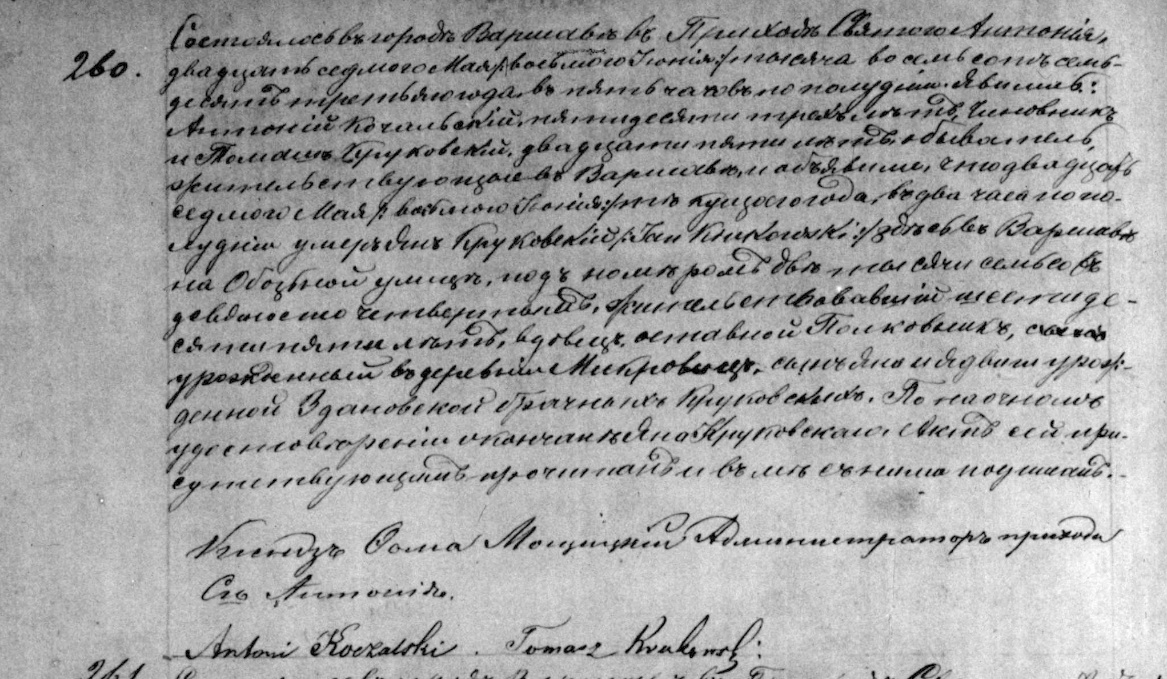 260.
Состоялось въ городѣ Варшавѣ въ Приходѣ Святого Антонія,
двадцать седмого Мая /: восьмого Іюня :/ тысяча восемьсотъ семь-
десятъ третьяго года, въ пять часовъ по полудни. Явились:
Антоній Кочальскій, пятидесяти трехъ лѣтъ, Чиновникъ
и Томашъ Круковскій, двадцати пяти лѣтъ, обыватель,
жительствующіе въ Варшавѣ, и объявили, что двадцать
седмого Мая /: восьмого Іюня :/ текущаго года, въ два часа по по-
лудни умеръ Янъ Круковскій /: Jan Krukowski :/ здѣсь въ Варшавѣ
на Обозной улицѣ, подъ номеромъ двѣ тысячи семьсотъ
девяносто четвертымъ, жительствовавшій шестиде-
сяти пяти лѣтъ, вдовецъ, отставной Полковникъ,
урожденный въ деревнѣ сынъ Яна и Ядвиги урож-
денной Здановской брачныхъ Круковскихъ. По наочномъ
удостовѣреніи о кончинѣ Яна Круковскаго, Актъ сей при-
сутствующимъ прочитанъ и въмѣстѣ съ ними подписанъ.
Ксендзъ Ѳома Мощицкій Администраторъ прихода
Св. Антонія.
Antoni Koczalski. Tomasz Krukowski
261.